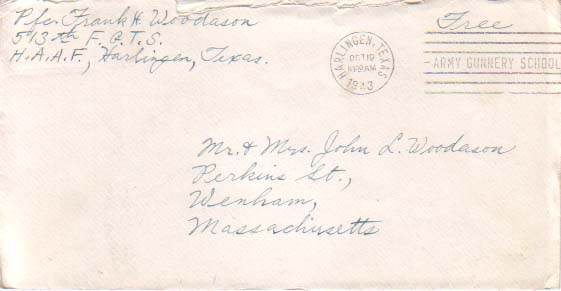 Pfc. Frank H. Woodason
513th F.G.T.S.
H.A.A.F., Harlingen, Texas.
Free
HARLINGEN, TEXAS
OCT 19
AM
1943
ARMY GUNNERY SCHOOL
Mr. & Mrs. John L. Woodason
Perkins St.,
Wenham,
Massachusetts